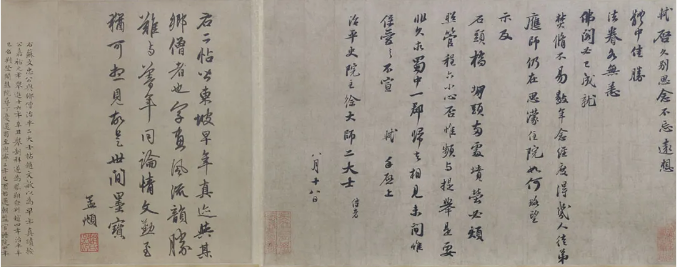 軾啓久別思念不忘遠想
體中佳勝
法眷各無恙
佛閣必已成就
焚脩不易數年念經度得幾人徒弟
應師仍在思濛住院如何略望
示及
石頭橋 堋頭兩處墳塋必煩
照管程六小心否惟頻與提舉是要
非久求蜀中一郡歸去相見未間惟
保愛之不宣 軾手啓上
治平史院主徐大師二大士 侍者
八月十八日
右二帖皆東坡早年真迹與其
鄉僧者也字畫風流韻勝
難與暮年同論情文勤至
猶可想見故是世間墨寶
孟頫